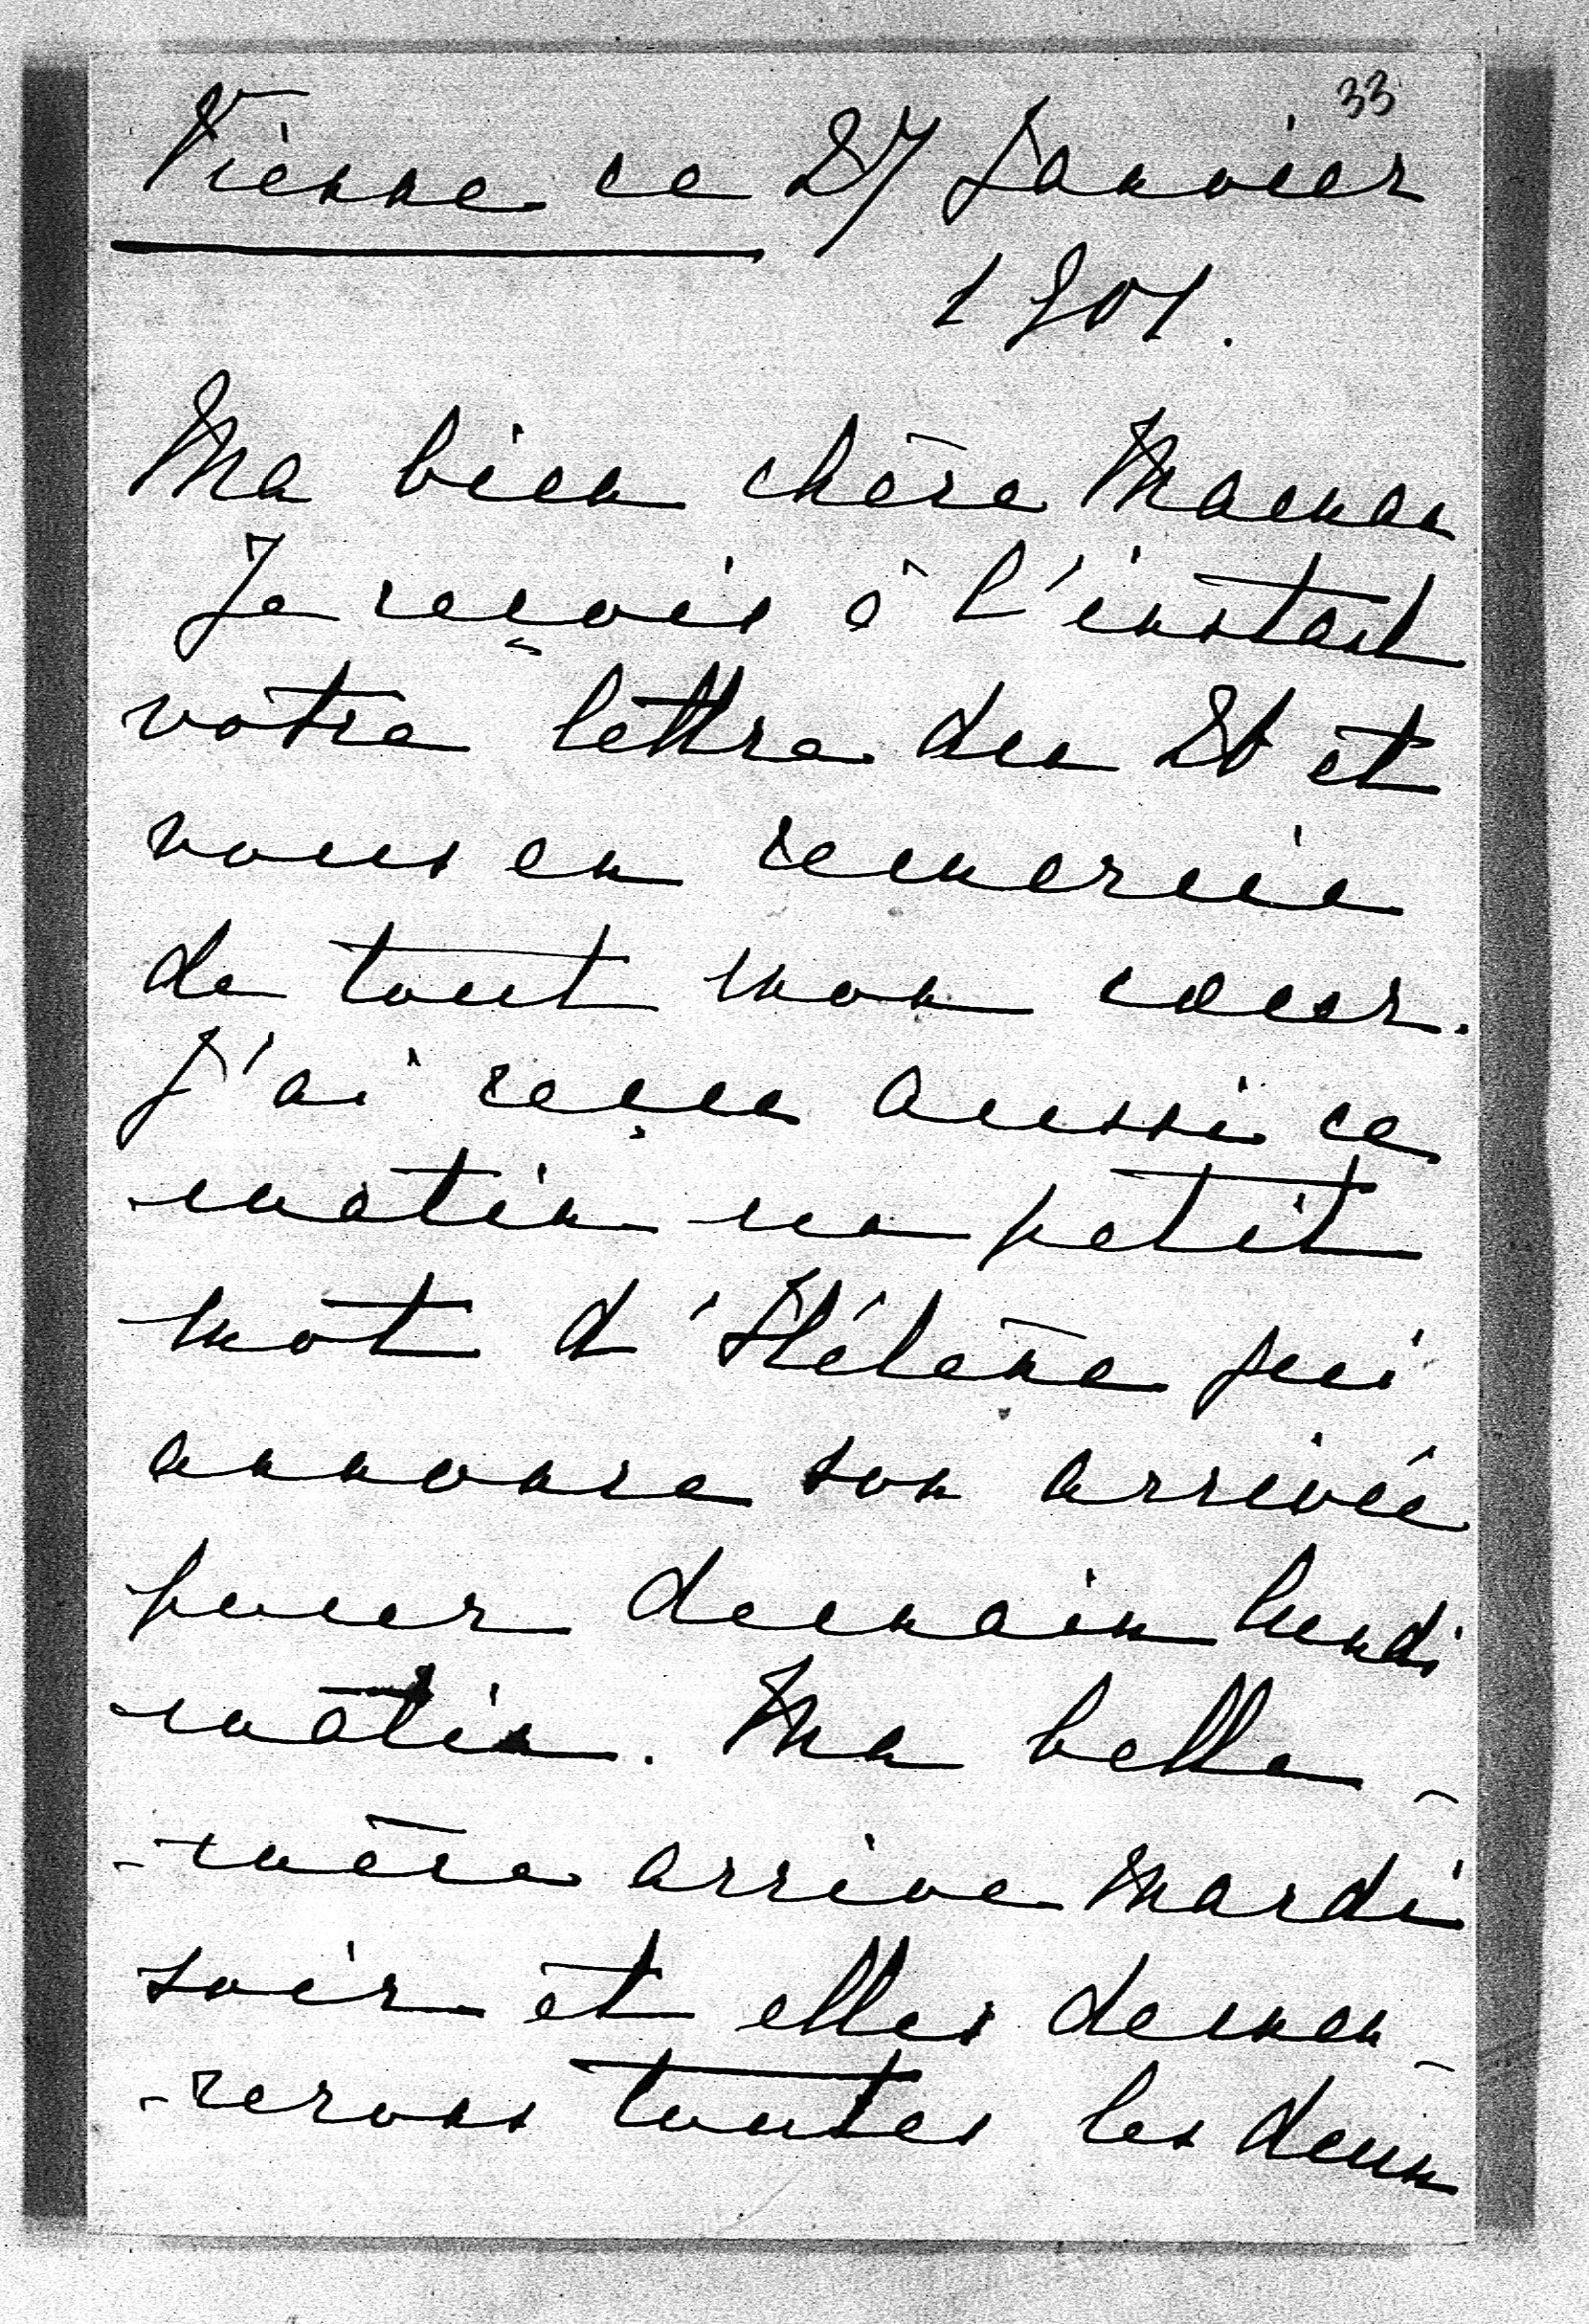 33
Vienne ce 27 Janvier
1901.
Ma bien chère Maman
Je reçois à l'instant
votre lettre du 26 et
vous en remercie
de tout mon cœur.
J'ai reçu aussi ce
matin un petit
mot d'Hélène qui
annonce son arrivée
pour demain lundi
matin. Ma belle-
-mère arrive Mardi
soir et elles demeu-
-rerons toutes les deux